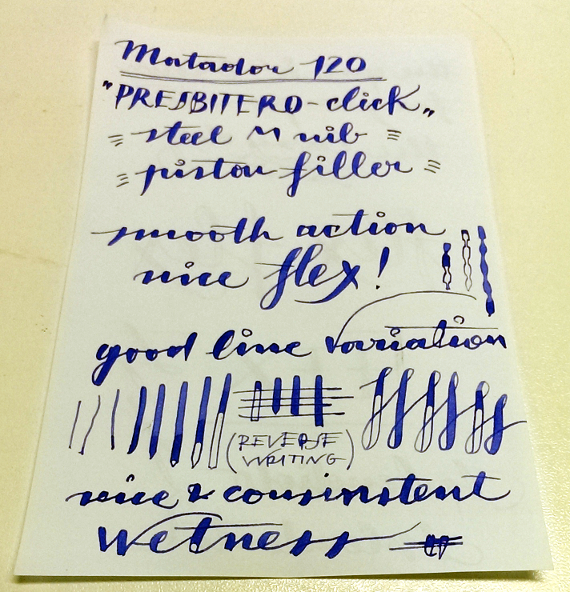 Matador 120
"PRESBITERO-click"
steel M nib
piston filler
smooth action
nice flex!
good line variation
(REVERSE
WRITING)
nice & cousinstent
wetness